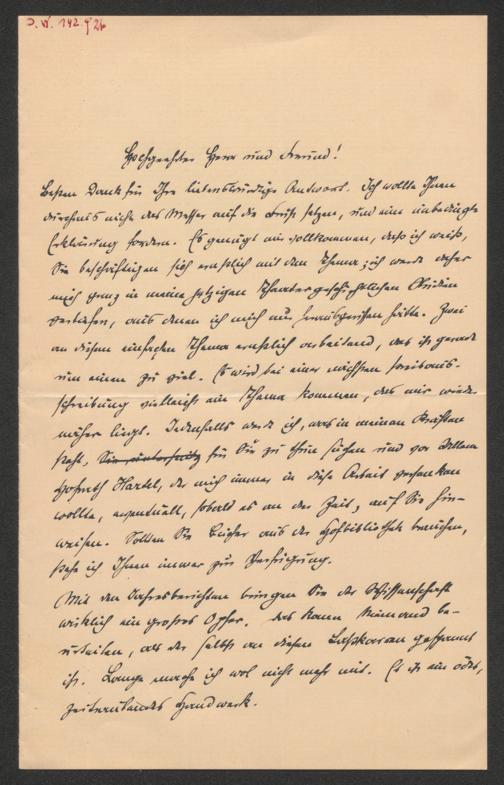 J. N. 142926
Hochgeehrter Herr und Freund!
Besten Dank für Ihre liebenswürdige Antwort. Ich wollte Ihnen
durchaus nicht das Messer auf die Brust setzen, und eine unbedingte
Erklärung fordern. Es genügt mir vollkommen, dass ich weiß,
Sie beschäftigen sich ernstlich mit dem Thema; ich werde daher
mich ganz in meine jetzigen Theatergeschichtlichen Studien
vertiefen, aus denen ich mich nur herausgerissen hätte. Zwei
an diesem einfachen Thema ernstlich arbeitend, das ist gerade
um einen zu viel. Es wird bei einer nächsten Preisaus-
schreibung vielleicht ein Thema kommen, das mir wieder
näher liegt. Jedenfalls werde ich, was in meinen Kräften
steht, für Sie zu thun suchen und vor Allem
Hofrath Hartel, der mich immer in diese Arbeit versenken
wollte, eventuell, sobald es an der Zeit, auf Sie hin-
weisen. Sollten Sie Bücher aus der Hofbibliothek brauchen,
stehe ich Ihnen immer zur Verfügung.
Mit den Jahresberichten bringen Sie der Wissenschaft
wirklich ein großes Opfer. Das kann Niemand be-
urteilen, als der selbst an diesen Karren gespannt
ist. Lange mache ich wol nicht mehr mit. Es ist ein ödes,
zeitraubendes Handwerk.